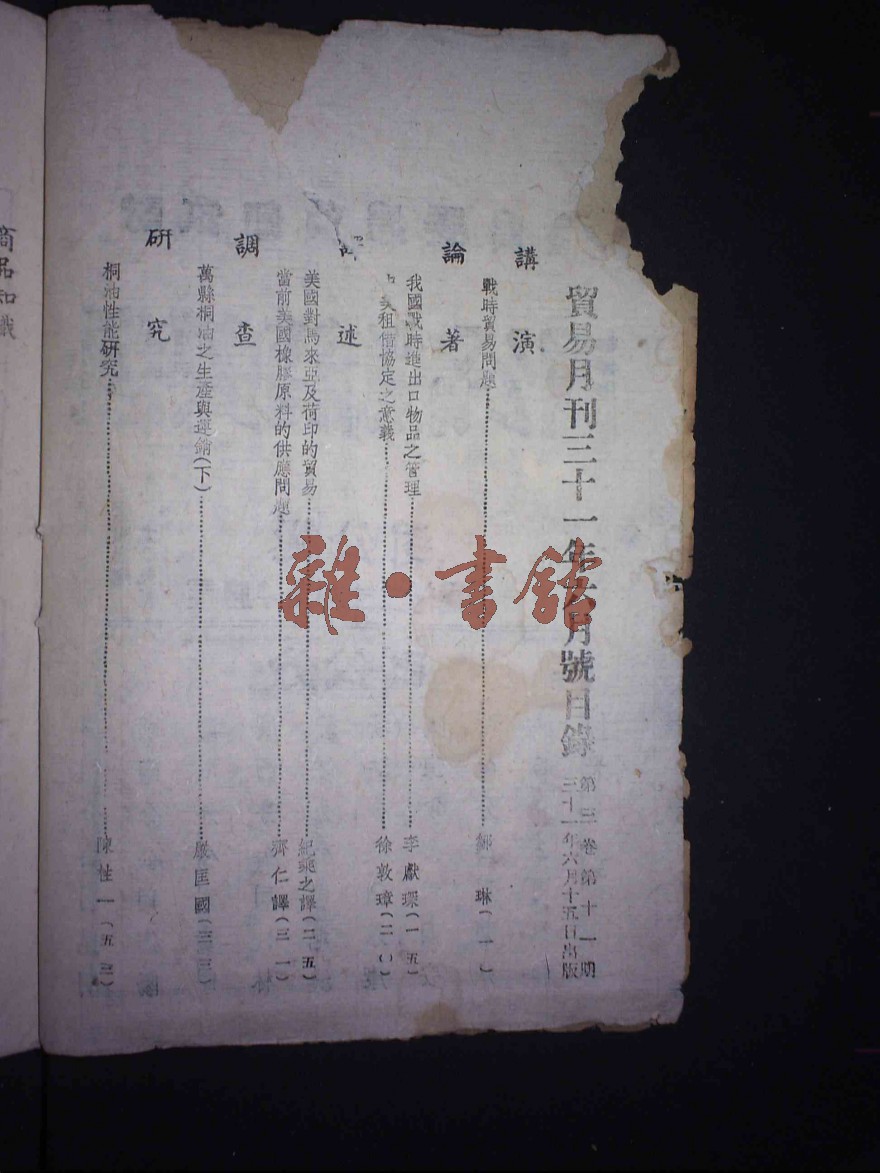 貿易月刊三十一年六月號目錄
第三卷第十一期
三十一年六月十五日出版
講演
戰時貿易問題 鄒琳(一)
論著
我國戰時進出口物品之管理 李獻琛(一五)
美租借協定之意義 徐敦璋(二〇)
述
美國對馬來亞及荷印的貿易 紀奭之譯(二五)
當前美國橡膠原料的供應問題 齊仁譯(三一)
調查
萬縣桐油之生產與運銷(下) 嚴匡國(三三)
研究
桐油性能研究 陳性一(五三)
商品知識
雜•書館